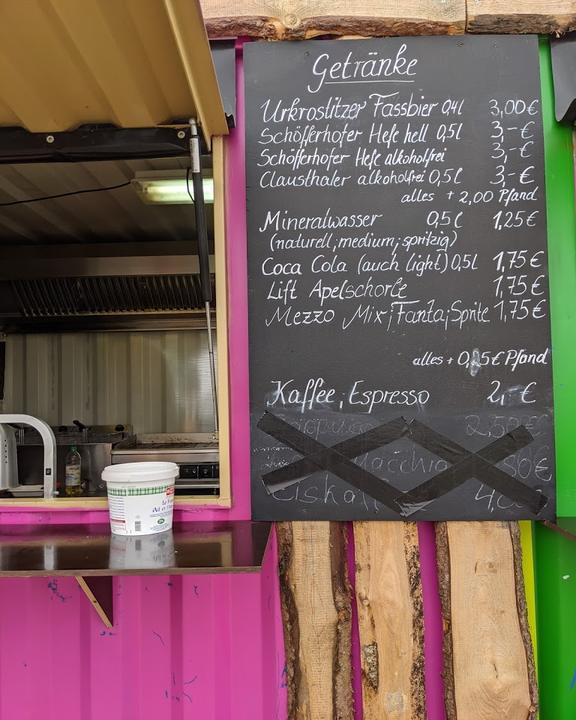 Getränke
Urkrostitzer Fassbier 0,4l 3,00€
Schöfferhofer Hefe hell 0,5l 3,-€
Schöfferhofer Hefe alkoholfrei 3,-€
Clausthaler alkoholfrei 0,5l 3,-€
alles + 2,00 Pfand
Mineralwasser 0,5l 1,25€
(naturell, medium, spritzig)
Coca Cola (auch light) 0,5l 1,75€
Lift Apelschorle 1,75€
Mezzo Mix, Fanta, Sprite 1,75€
alles + 0,25€ Pfand
Kaffee, Espresso 2,-€
2,50€
Macchia
Eiskaf